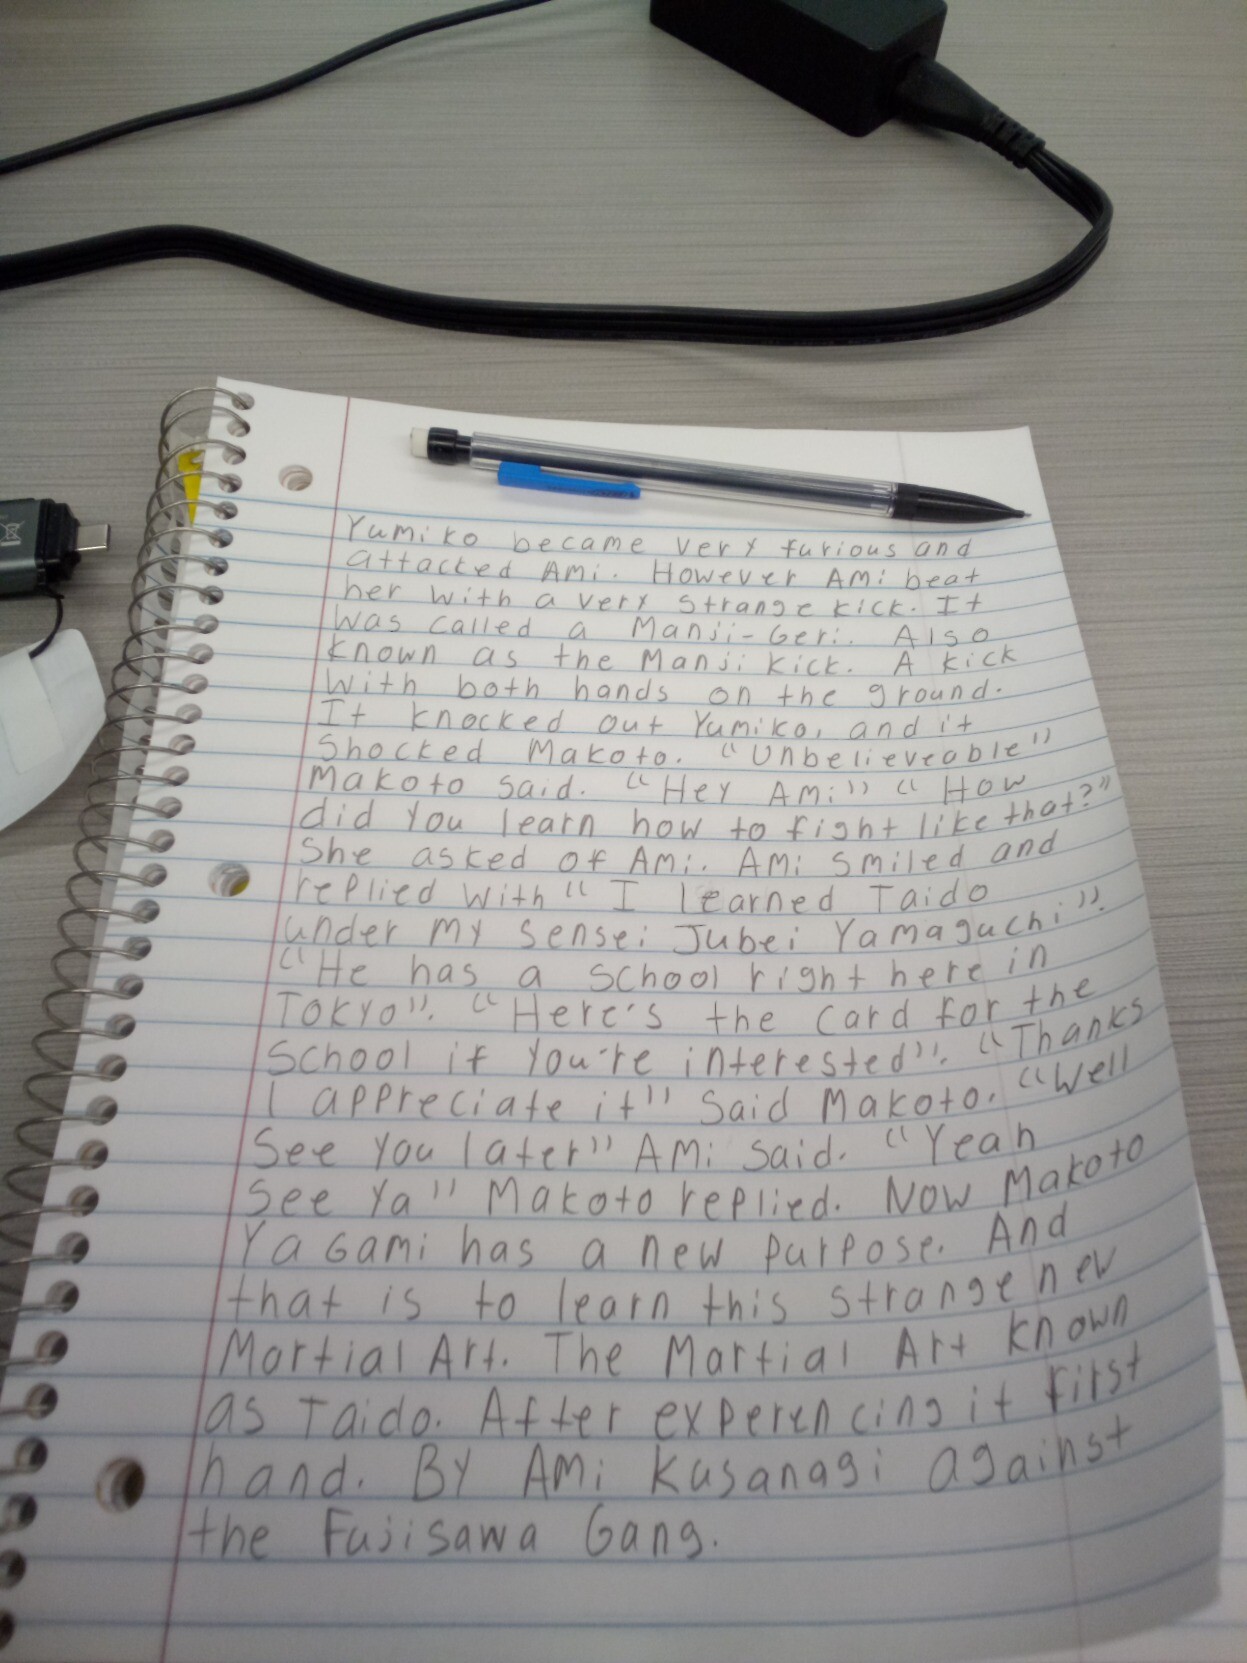 Yumiko became very furious and
attacked Ami. However Ami beat
her with a very strange kick. It
was called a Manji-Geri. Also
known as the Manji kick. A kick
with both hands on the ground.
It knocked out Yumiko, and it
shocked Makoto. "Unbelieveable"
Makoto said. "Hey Ami" "How
did you learn how to fight like that?"
She asked of Ami. Ami smiled and
replied with "I learned Taido
under my sensei Jubei Yamaguchi".
"He has a school right here in
Tokyo". "Here's the card for the
school if you're interested". "Thanks
I appreciate it" said Makoto. "Well
see you later" Ami said. "Yeah
see ya" Makoto replied. Now Makoto
Yagami has a new purpose. And
that is to learn this strange new
Martial Art. The Martial Art known
as Taido. After experencing it first
hand. By Ami Kusanagi against
the Fujisawa Gang.